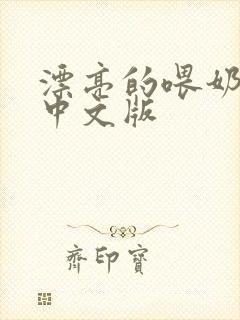 漂亮的喂奶
中文版
齐印宝